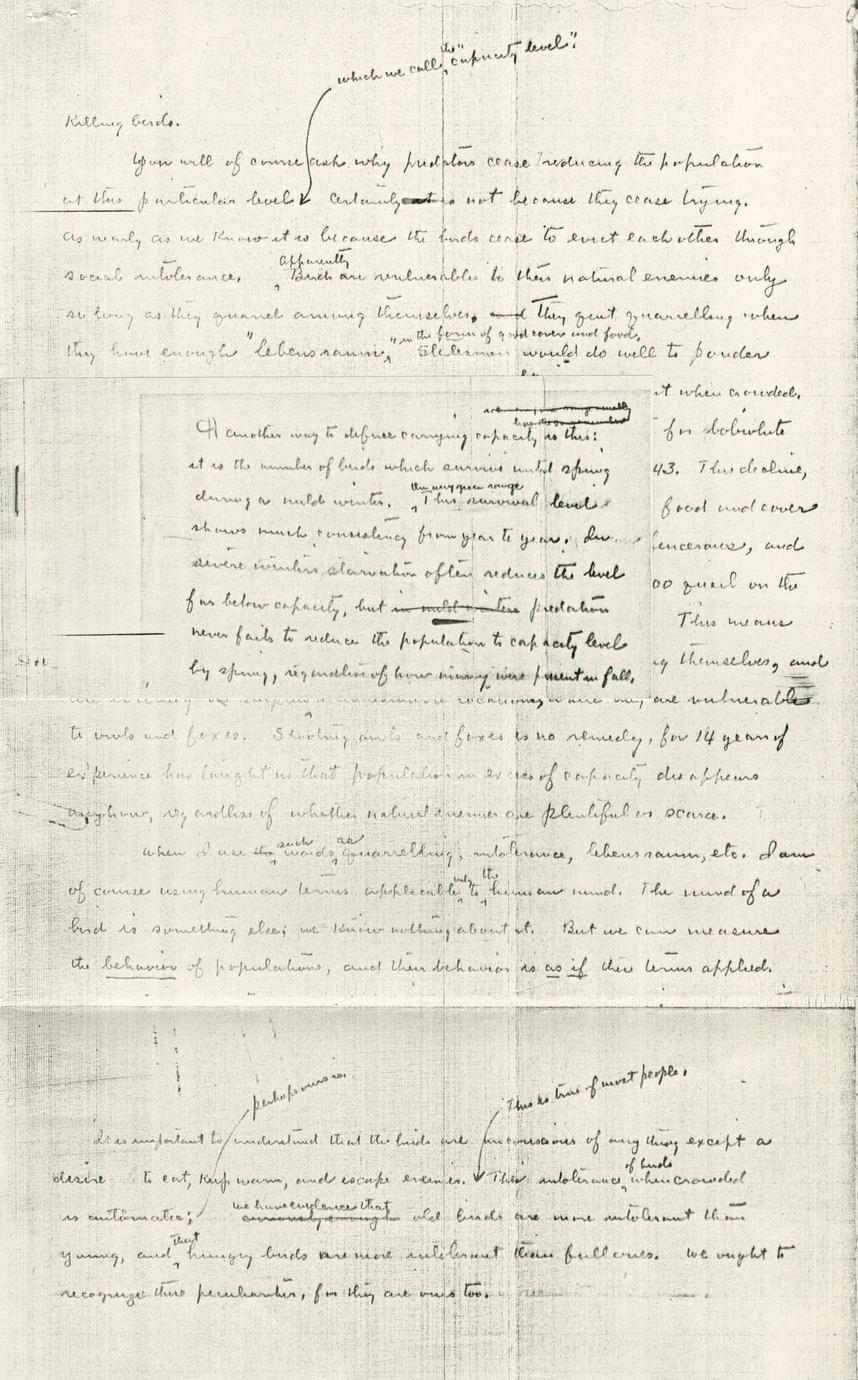 which we call the "capacity level".
Killing birds.
You will of course ask why predators cease reducing the population
at this particular level. Certainly it is not because they cease trying.
As nearly as we know it is because the birds cease to evict each other through
social intolerance. Apparently Birds are vulnerable to their natural enemies only
so long as they quarrel among themselves. and They quit quarrelling when
they have enough "lebensraum," in the form of good cover and food. Statesmen would do well to ponder
it when crowded.
for bobwhite
43. This decline,
food and cover
and
00 quail on the
This means
themselves, and
Another way to define carrying capacity is this:
it is the number of birds which survive until spring
during a mild winter. On any given range This survival level
shows much consistency from year to year. In
severe winters, starvation often reduces the level
far below capacity, but in mild winters predation
never fails to reduce the population to capacity level
by spring, regardless of how many were present in fall.
are vulnerable
to owls and foxes. Shooting owls and foxes is no remedy, for 14 years of
experience has taught us that population in excess of capacity disappears
anyhow, regardless of whether natural enemies are plentiful or scarce.
When I use such words as quarrelling, intolerance, lebensraum, etc. I am
of course using human terms applicable only to the human mind. The mind of a
bird is something else; we know nothing about it. But we can measure
the behavior of populations, and their behavior is as if these terms applied.
perhaps ours is
This is true of most people.
It is important to understand that the birds are unconscious of anything except a
desire to eat, keep warm, and escape enemies. Their intolerance of birds when crowded
is automatic; we have evidence that curiously enough old birds are more intolerant than
young, and that hungry birds are more intolerant than full ones. We ought to
recognize these peculiarities, for they are ours too.